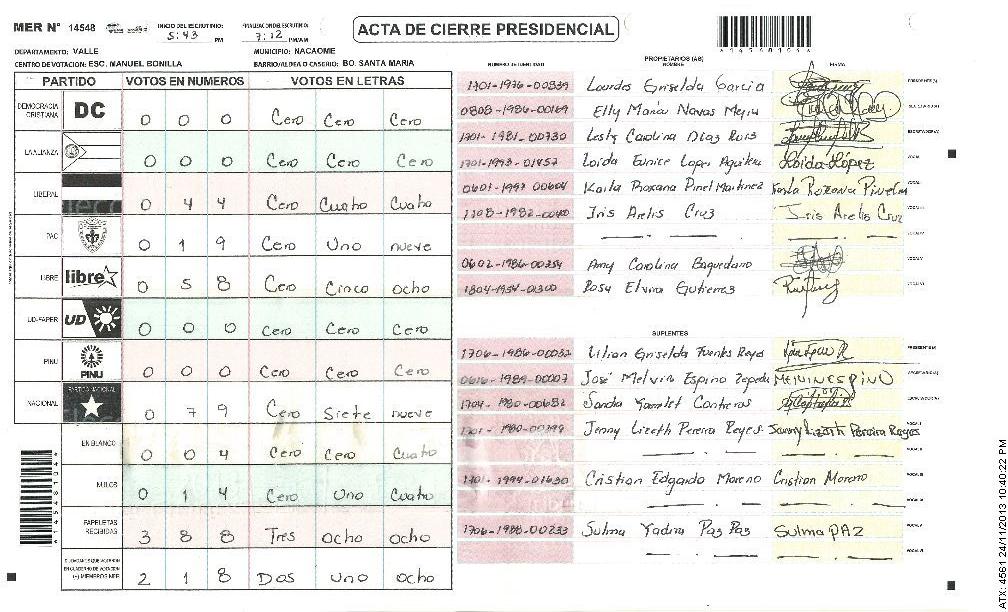 MER N° 14548 INICIO DEL ESCRUTINIO: 5:43 PM FINALIZACION DEL ESCRUTINIO: 7:12 PM/AM
ACTA DE CIERRE PRESIDENCIAL
DEPARTAMENTO: VALLE MUNICIPIO: NACAOME
CENTRO DE VOTACION: ESC. MANUEL BONILLA BARRIO/ALDEA O CASERIO: BO. SANTA MARIA
PARTIDO VOTOS EN NUMEROS VOTOS EN LETRAS
DEMOCRACIA CRISTIANA DC 0 0 0 Cero Cero Cero
LA ALIANZA 0 0 0 Cero Cero Cero
LIBERAL 0 4 4 Cero Cuatro Cuatro
PAC 0 1 9 Cero Uno nueve
LIBRE libre 0 5 8 Cero Cinco ocho
UD-FAPER UD 0 0 0 Cero Cero Cero
PINU PINU 0 0 0 Cero Cero Cero
NACIONAL PARTIDO NACIONAL 0 7 9 Cero Siete nueve
EN BLANCO 0 0 4 Cero Cero Cuatro
NULOS 0 1 4 Cero Uno Cuatro
PAPELETAS RECIBIDAS 3 8 8 Tres ocho ocho
CIUDADANOS QUE VOTARON EN CUADERNO DE VOTACION (+) MIEMBROS MER 2 1 8 Dos uno ocho
PROPIETARIOS (AS)
NUMERO IDENTIDAD NOMBRE FIRMA
1701-1976-00839 Lourdes Griselda Garcia PRESIDENTE(A)
Elly Maria Navas Mejia
1701-1981-00730 Lesty Carolina Diaz SECRETARIO(A)
1701-1993-01457 Loida Eunice Lopez Aguilera Loida López
0601-1997-00604 Karla Roxana Pinel Martinez
Iris Arelis Cruz Iris Arelis Cruz
0602-1986-00354 Amy Carolina Baquedano
1804-1954-01300 Rosa Elvira Gutierrez
SUPLENTES
1706-1986-00032 Lilian Griselda Fuentes Reyes
0616-1989-00007 José Melvin Espino Zepeda MELVIN ESPINO
Contreras
Jenny Lizeth Pereira Reyes Jenny Lizeth Pereira Reyes
1701-1994-01630 Cristian Edgardo Moreno Cristian Moreno
1706-1988-00233 Sulma Yadira Paz Paz Sulma PAZ
ATX: 4561 24/11/2013 10:40:22 PM